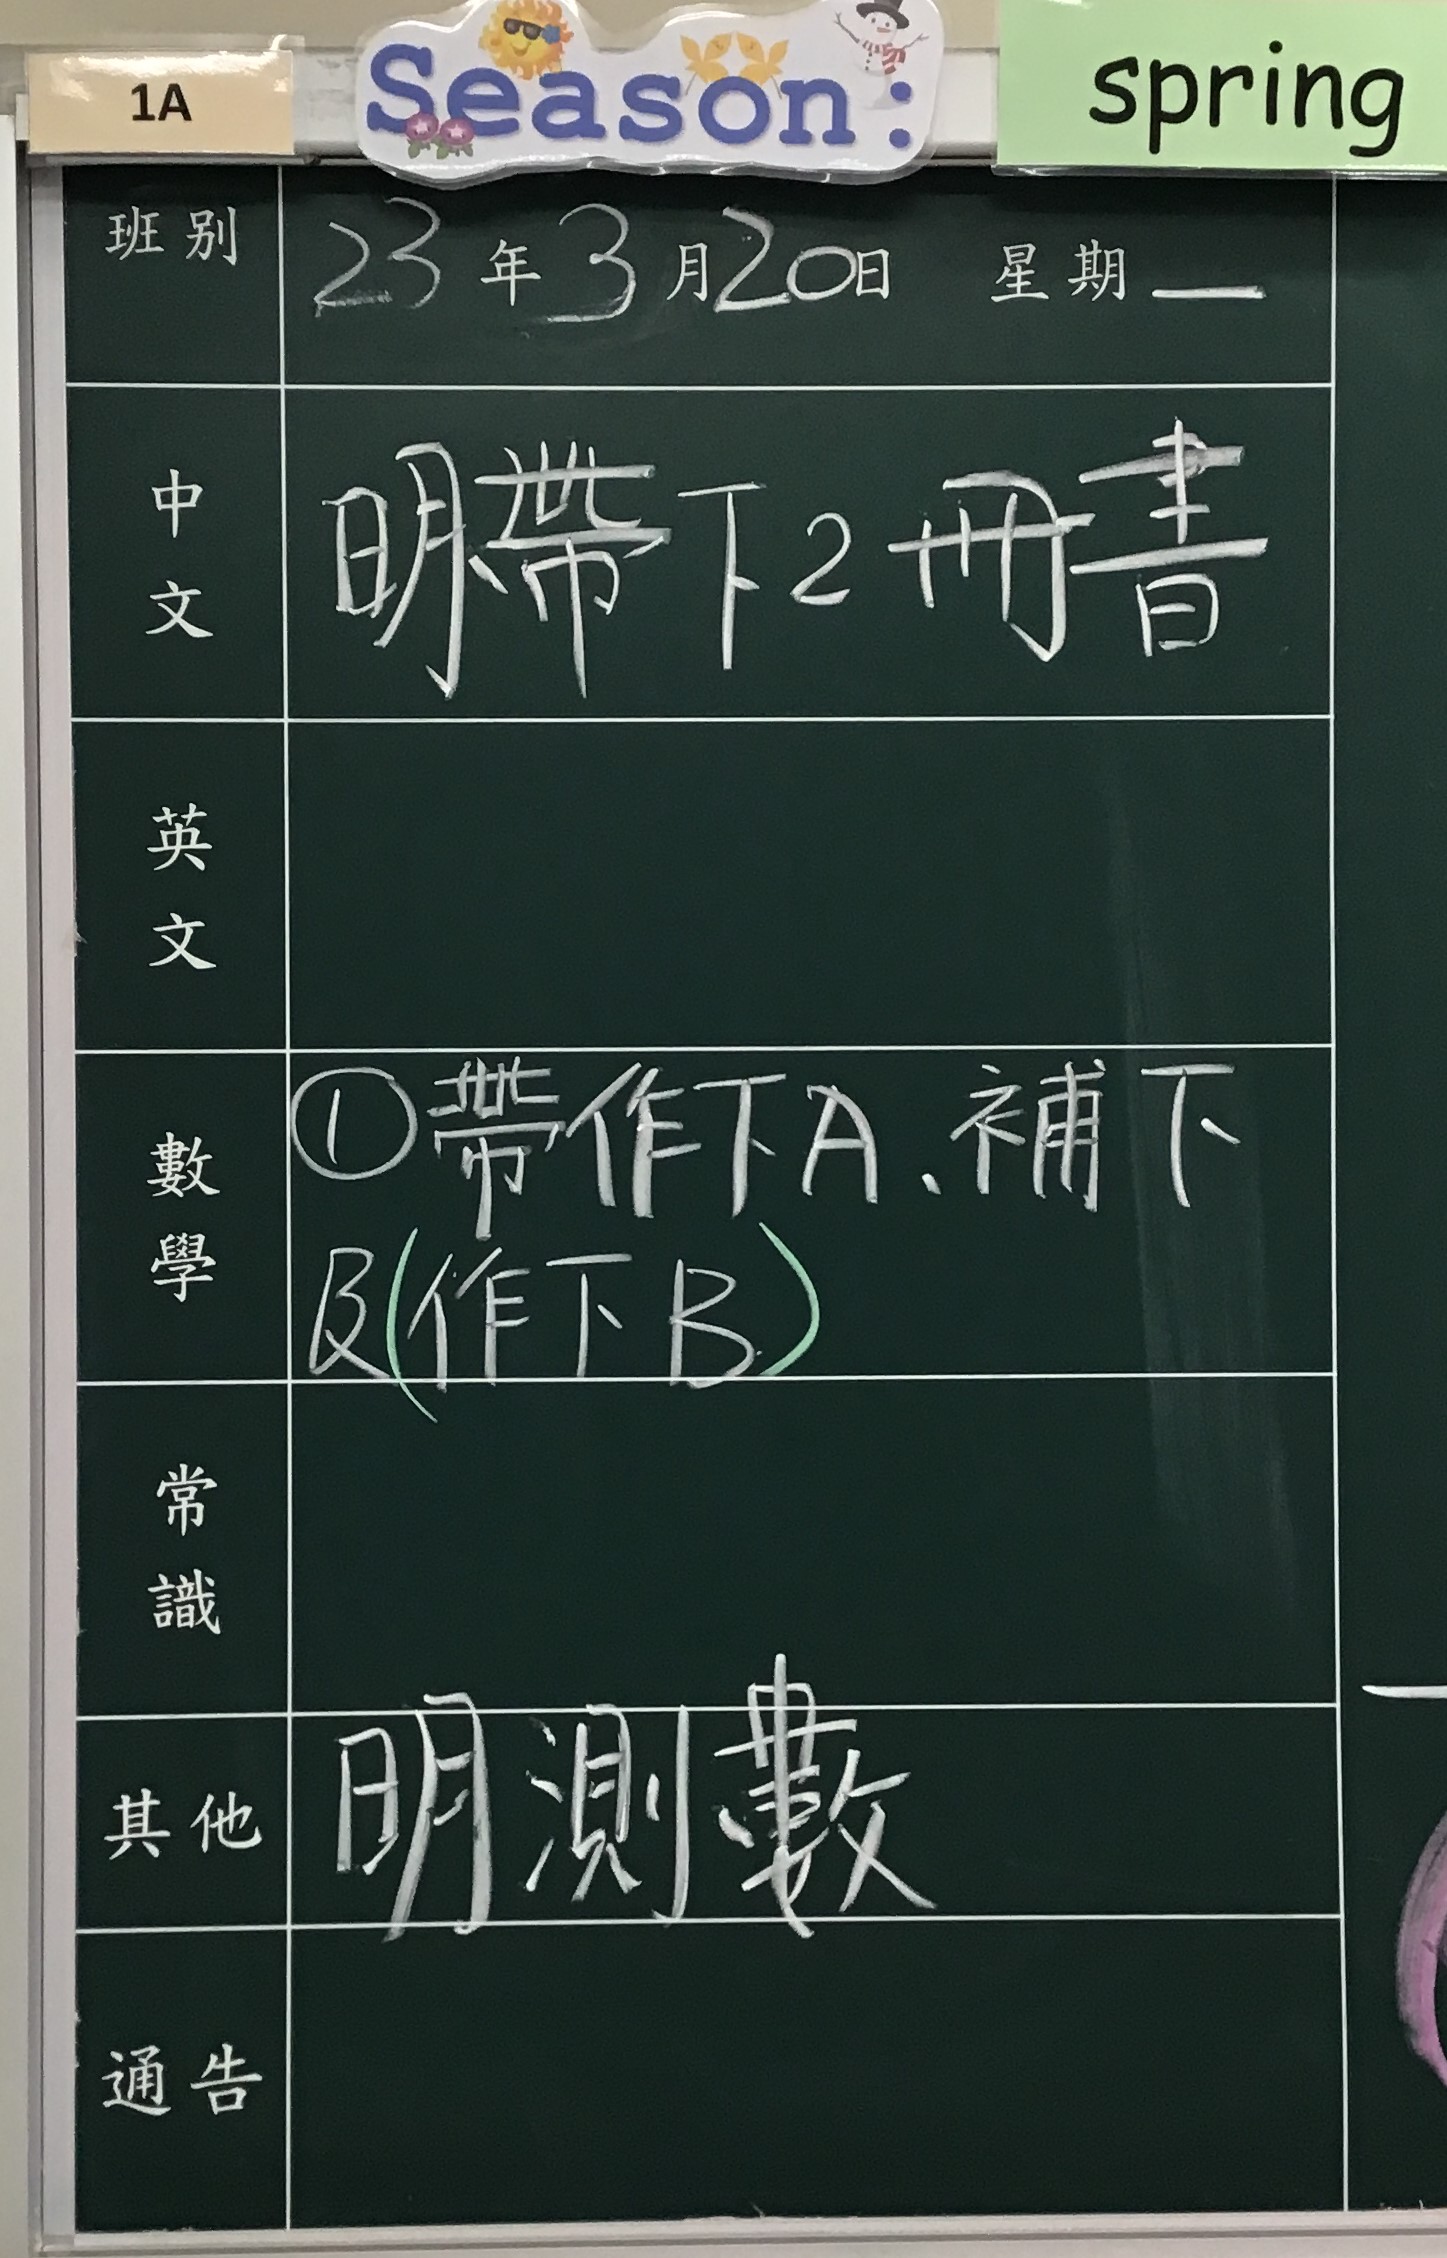 1A
Season:
spring
班別
23年3月20日 星期一
中文
明帶下2冊書
英文
數學
①帶作下A、補下
及(作下B)
常識
其他
明測數
通告